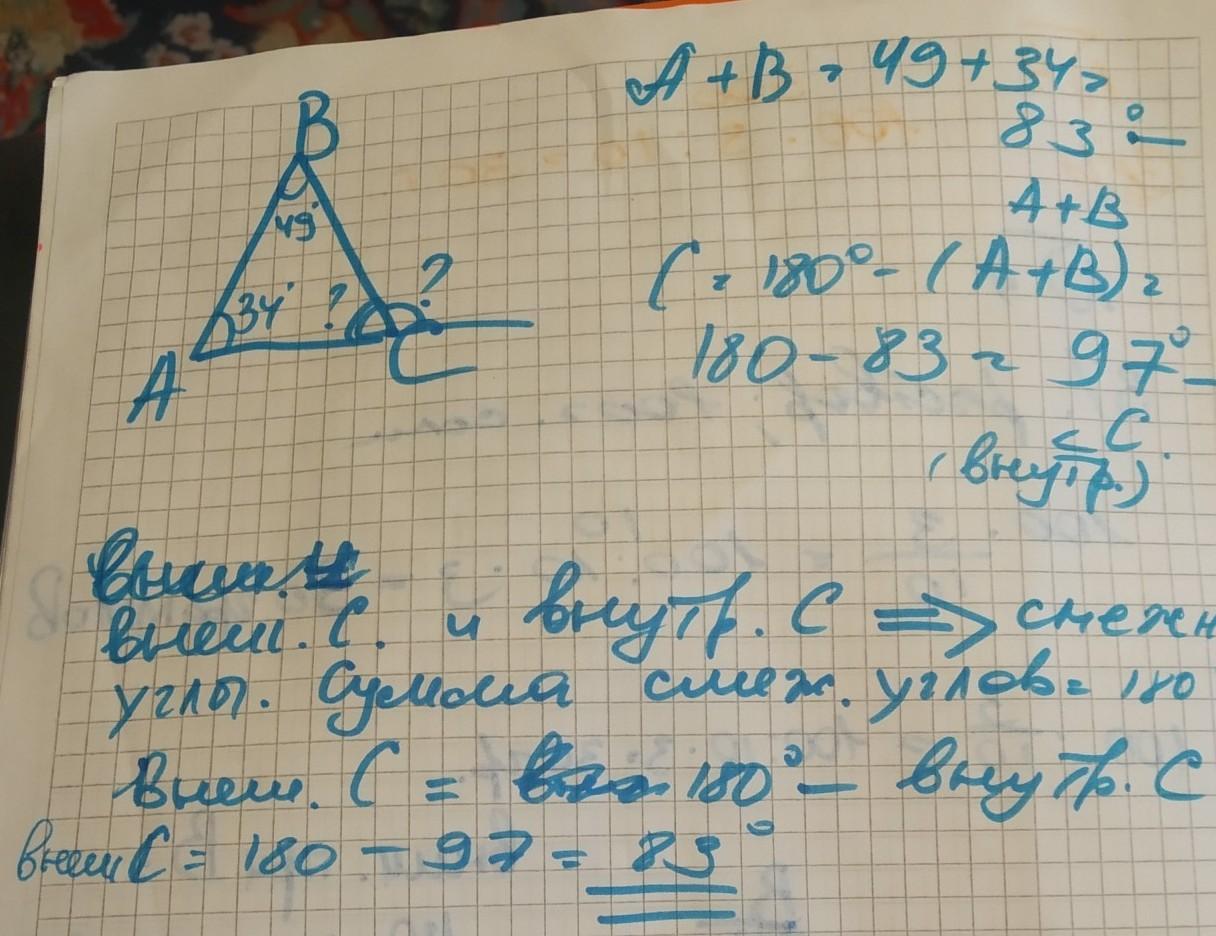 B
49°
34°
?
?
A
C
A + B = 49 + 34 =
83° —
A + B
C = 180° - (A + B) =
180 - 83 = 97° —
< C.
(внутр.)
внеш. С. и внутр. С ⇒ смежн
углы. Сумма смеж. углов = 180
Внеш. С = 180° — внутр. С
внеш С = 180 - 97 = 83°